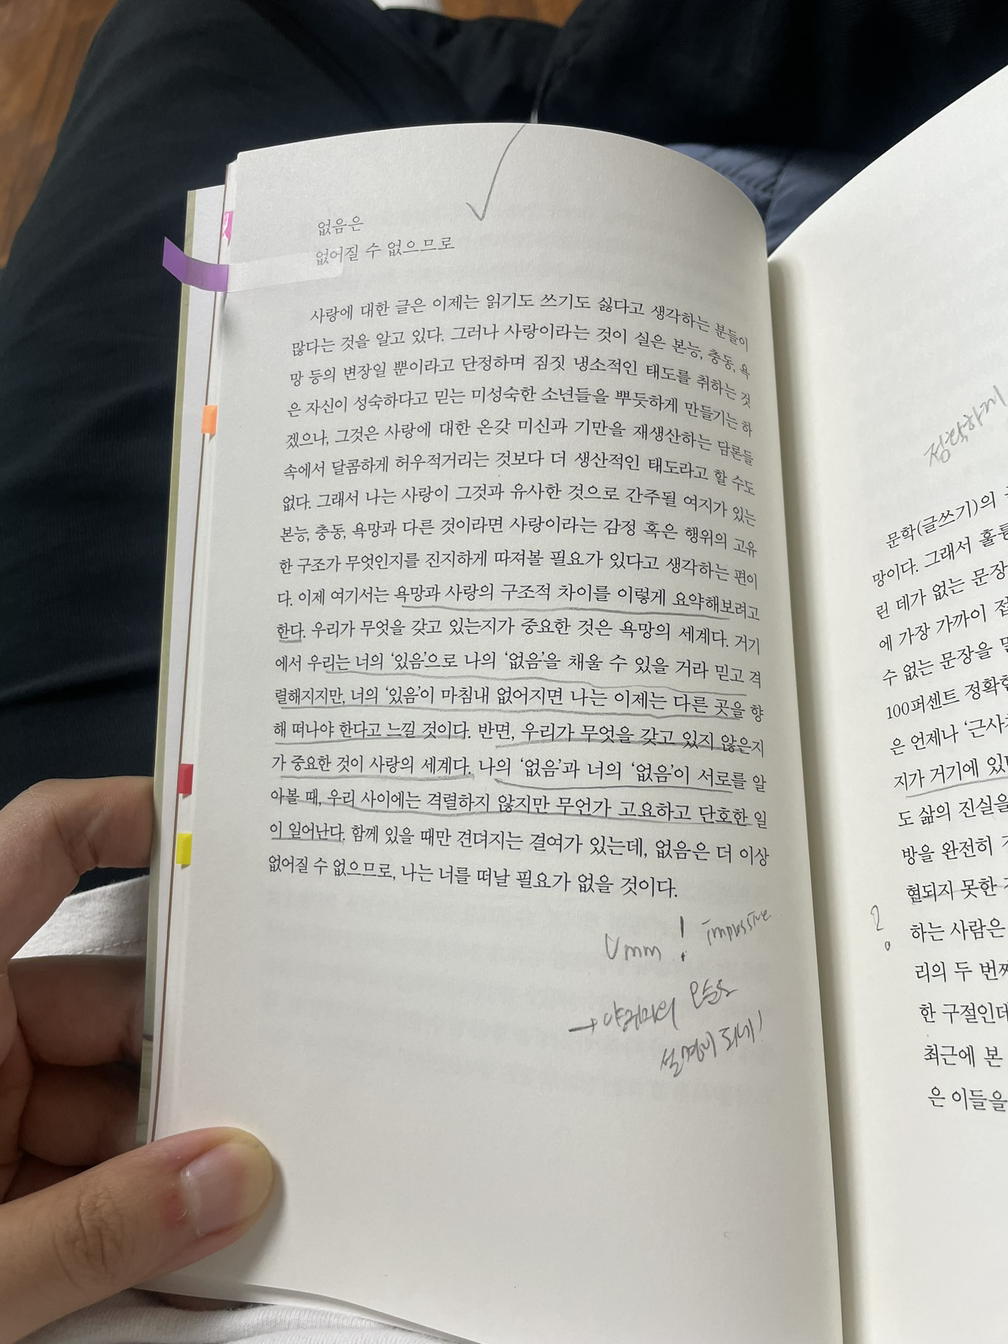 없음은
없어질 수 없으므로
사랑에 대한 글은 이제는 읽기도 쓰기도 싫다고 생각하는 분들이
많다는 것을 알고 있다. 그러나 사랑이라는 것이 실은 본능, 충동, 욕
망 등의 변장일 뿐이라고 단정하며 짐짓 냉소적인 태도를 취하는 것
은 자신이 성숙하다고 믿는 미성숙한 소년들을 뿌듯하게 만들기는 하
겠으나, 그것은 사랑에 대한 온갖 미신과 기만을 재생산하는 담론들
속에서 달콤하게 허우적거리는 것보다 더 생산적인 태도라고 할 수도
없다. 그래서 나는 사랑이 그것과 유사한 것으로 간주될 여지가 있는
본능, 충동, 욕망과 다른 것이라면 사랑이라는 감정 혹은 행위의 고유
한 구조가 무엇인지를 진지하게 따져볼 필요가 있다고 생각하는 편이
다. 이제 여기서는 욕망과 사랑의 구조적 차이를 이렇게 요약해보려고
한다. 우리가 무엇을 갖고 있는지가 중요한 것은 욕망의 세계다. 거기
에서 우리는 너의 ‘있음’으로 나의 ‘없음’을 채울 수 있을 거라 믿고 격
렬해지지만, 너의 ‘있음’이 마침내 없어지면 나는 이제는 다른 곳을 향
해 떠나야 한다고 느낄 것이다. 반면, 우리가 무엇을 갖고 있지 않은지
가 중요한 것이 사랑의 세계다. 나의 ‘없음’과 너의 ‘없음’이 서로를 알
아볼 때, 우리 사이에는 격렬하지 않지만 무언가 고요하고 단호한 일
이 일어난다. 함께 있을 때만 견뎌지는 결여가 있는데, 없음은 더 이상
없어질 수 없으므로, 나는 너를 떠날 필요가 없을 것이다.
Umm !
→
설명이 되네!
정확하게
문학(글쓰기)의
망이다. 그래서 훌륭
린 데가 없는 문장
에 가장 가까이 접
수 없는 문장을
100퍼센트 정확한
은 언제나 ‘근사
지가 거기에 있
도 삶의 진실을
방을 완전히
현되지 못한
? 하는 사람은
리의 두 번째
한 구절인데
최근에 본
은 이들을